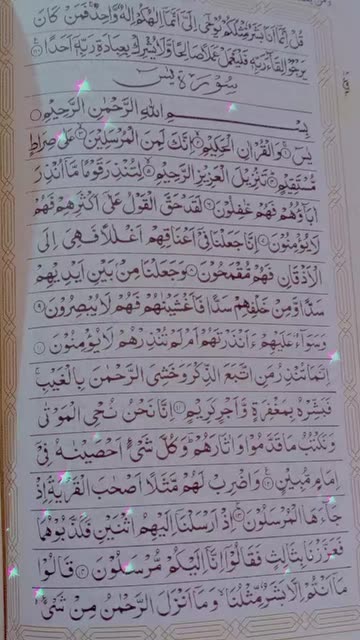 قُلْ اِنَّمَآ اَنَا بَشَرٌ مِّثْلُكُمْ يُوْحٰٓى اِلَيَّ اَنَّمَآ اِلٰهُكُمْ اِلٰهٌ وَّاحِدٌ فَمَنْ كَانَ
يَرْجُوْا لِقَآءَ رَبِّهٖ فَلْيَعْمَلْ عَمَلًا صَالِحًا وَّلَا يُشْرِكْ بِعِبَادَةِ رَبِّهٖٓ اَحَدًا
سورة يس
بِسْمِ اللهِ الرَّحْمٰنِ الرَّحِيْمِ
يٰسٓ ۝ وَالْقُرْاٰنِ الْحَكِيْمِ ۝ اِنَّكَ لَمِنَ الْمُرْسَلِيْنَ ۝ عَلٰى صِرَاطٍ
مُّسْتَقِيْمٍ ۝ تَنْزِيْلَ الْعَزِيْزِ الرَّحِيْمِ ۝ لِتُنْذِرَ قَوْمًا مَّآ اُنْذِرَ
اٰبَآؤُهُمْ فَهُمْ غٰفِلُوْنَ ۝ لَقَدْ حَقَّ الْقَوْلُ عَلٰٓى اَكْثَرِهِمْ فَهُمْ
لَا يُؤْمِنُوْنَ ۝ اِنَّا جَعَلْنَا فِيْٓ اَعْنَاقِهِمْ اَغْلٰلًا فَهِيَ اِلَى
الْاَذْقَانِ فَهُمْ مُّقْمَحُوْنَ ۝ وَجَعَلْنَا مِنْۢ بَيْنِ اَيْدِيْهِمْ
سَدًّا وَّمِنْ خَلْفِهِمْ سَدًّا فَاَغْشَيْنٰهُمْ فَهُمْ لَا يُبْصِرُوْنَ ۝
وَسَوَآءٌ عَلَيْهِمْ ءَاَنْذَرْتَهُمْ اَمْ لَمْ تُنْذِرْهُمْ لَا يُؤْمِنُوْنَ ۝
اِنَّمَا تُنْذِرُ مَنِ اتَّبَعَ الذِّكْرَ وَخَشِيَ الرَّحْمٰنَ بِالْغَيْبِ
فَبَشِّرْهُ بِمَغْفِرَةٍ وَّاَجْرٍ كَرِيْمٍ ۝ اِنَّا نَحْنُ نُحْيِ الْمَوْتٰى
وَنَكْتُبُ مَا قَدَّمُوْا وَاٰثَارَهُمْ وَكُلَّ شَيْءٍ اَحْصَيْنٰهُ فِيْٓ
اِمَامٍ مُّبِيْنٍ ۝ وَاضْرِبْ لَهُمْ مَّثَلًا اَصْحٰبَ الْقَرْيَةِ اِذْ
جَآءَهَا الْمُرْسَلُوْنَ ۝ اِذْ اَرْسَلْنَآ اِلَيْهِمُ اثْنَيْنِ فَكَذَّبُوْهُمَا
فَعَزَّزْنَا بِثَالِثٍ فَقَالُوْٓا اِنَّآ اِلَيْكُمْ مُّرْسَلُوْنَ ۝ قَالُوْا
مَآ اَنْتُمْ اِلَّا بَشَرٌ مِّثْلُنَا وَمَآ اَنْزَلَ الرَّحْمٰنُ مِنْ شَيْءٍ